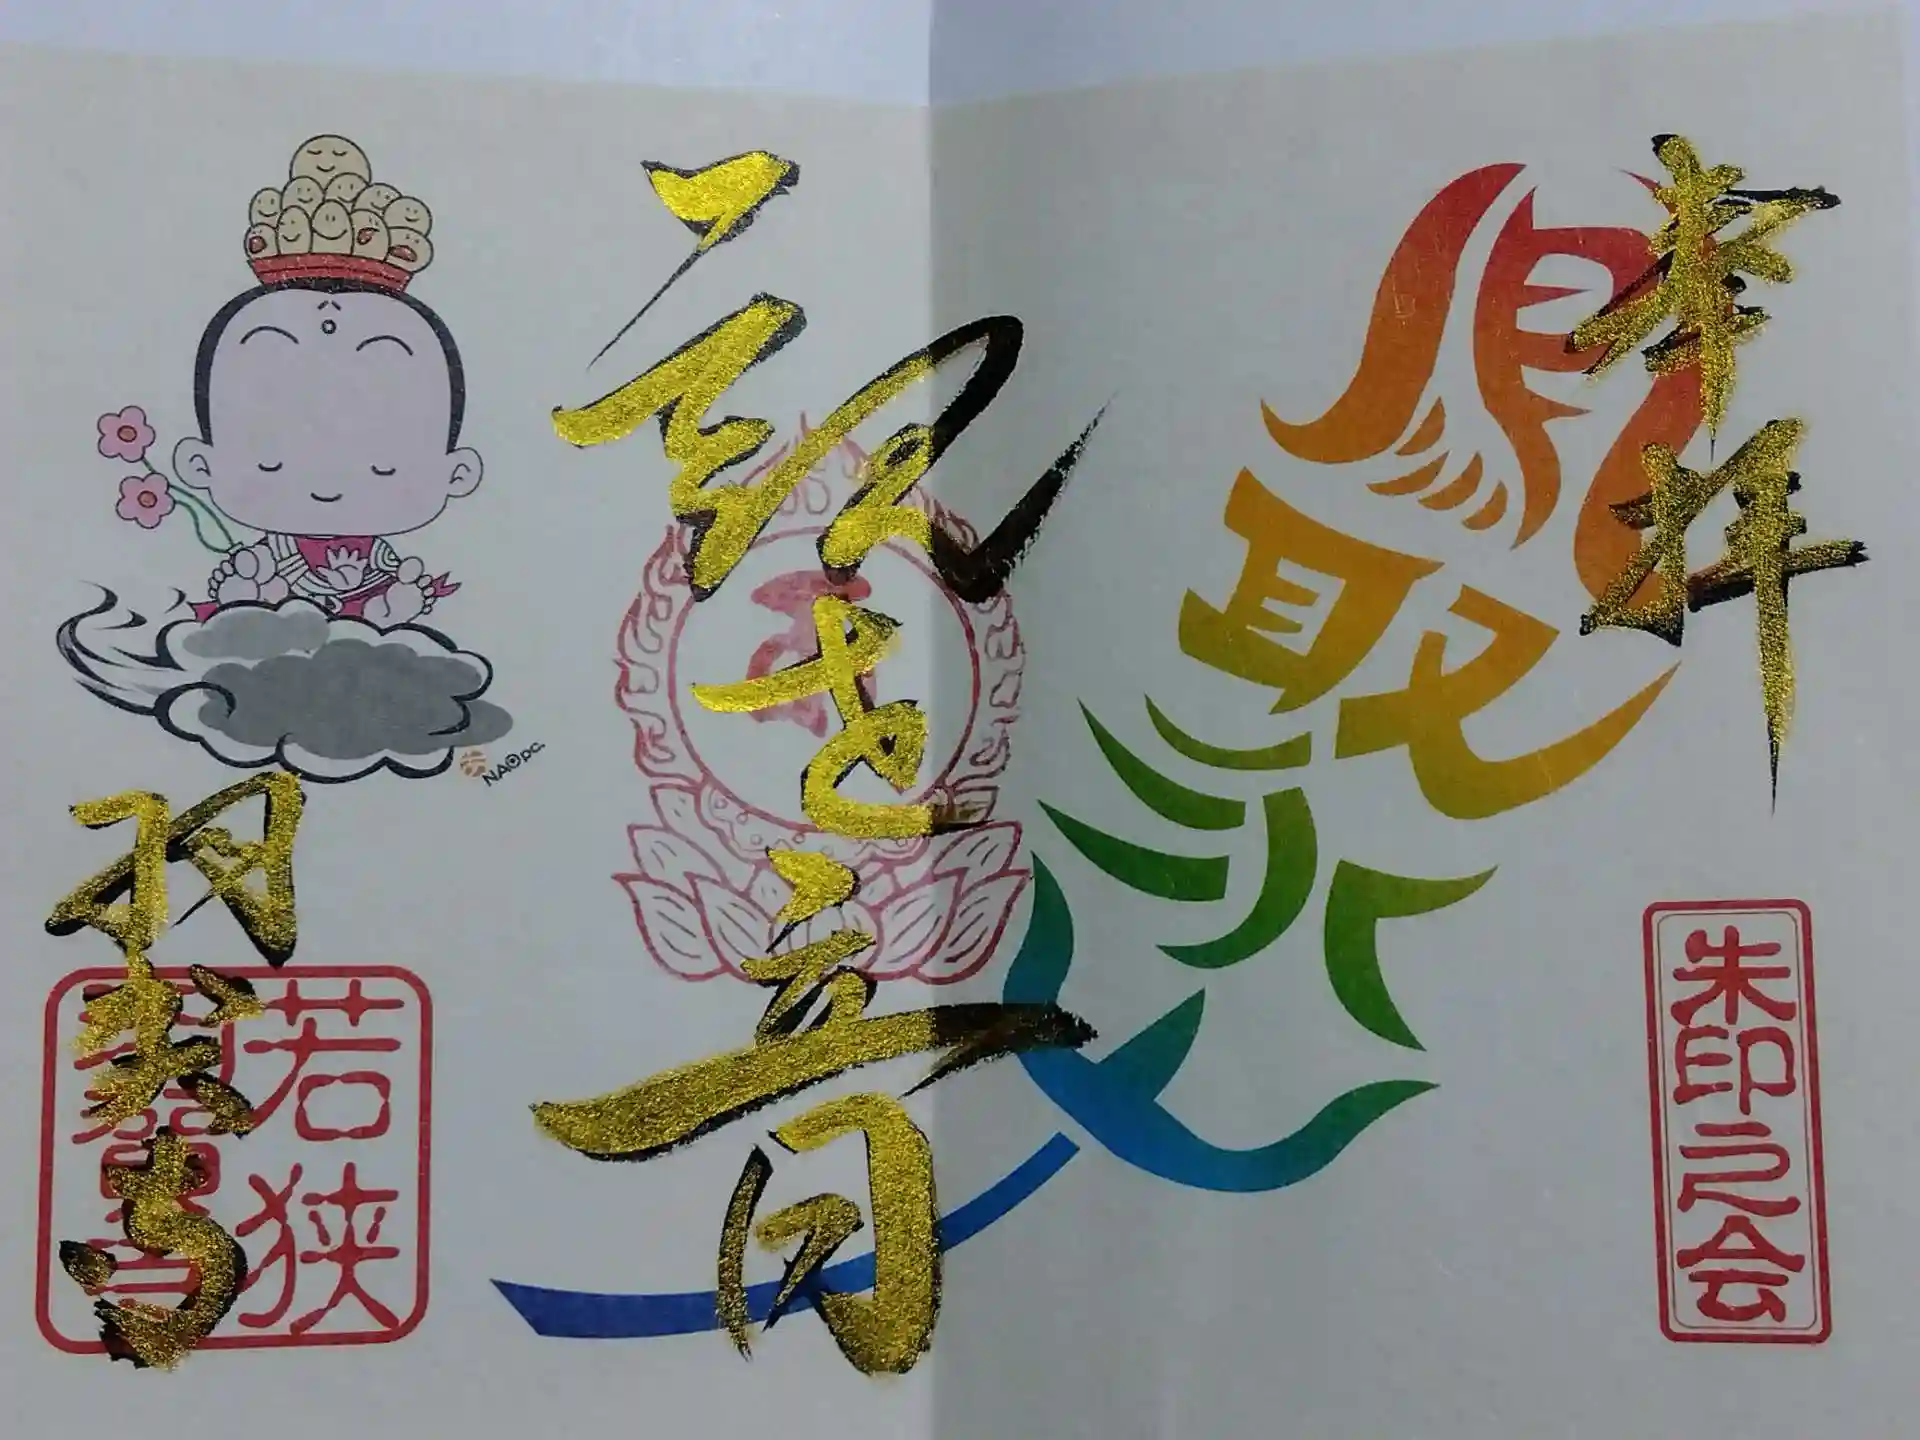 奉拝
朱印之会
鳳聚山
観世音
羽賀寺
若狭
羽賀寺
NAOpc.